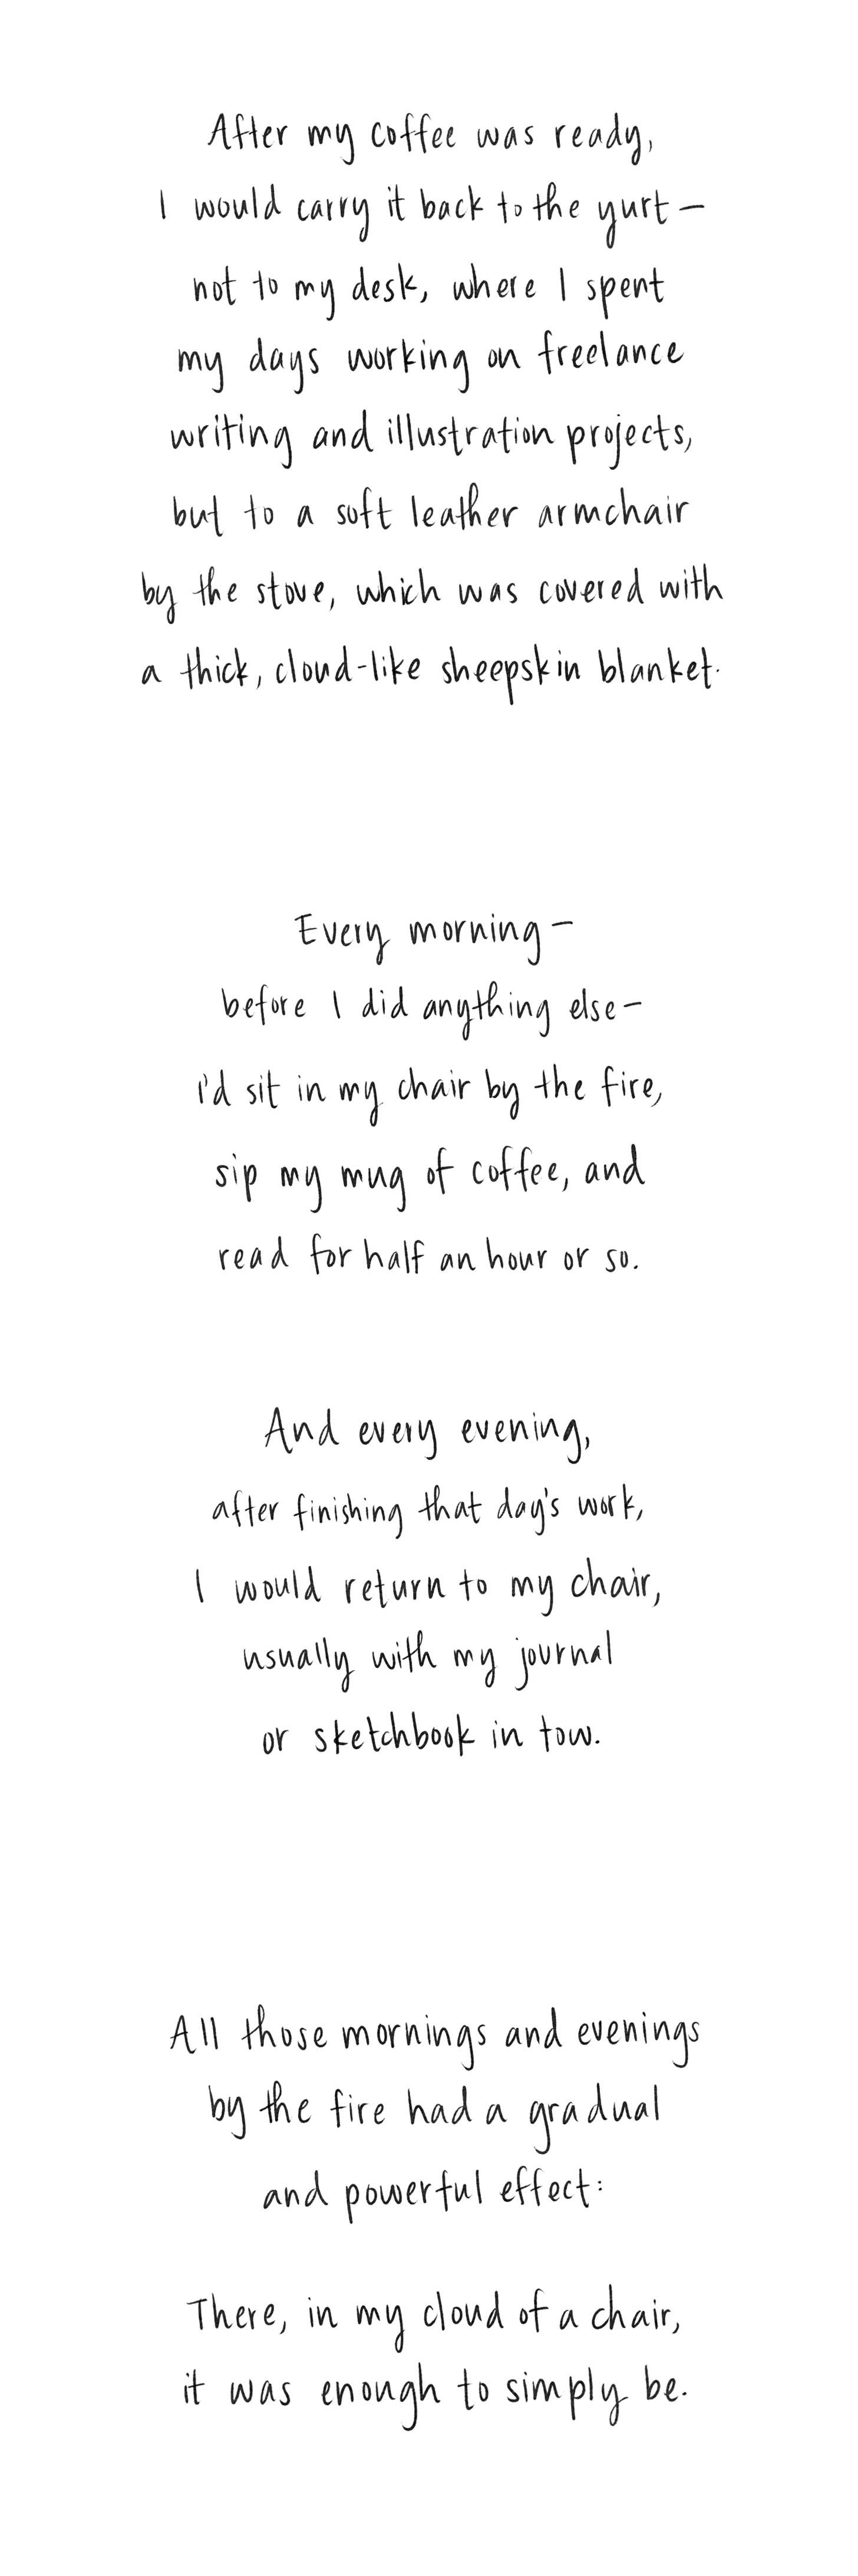 After my coffee was ready,
I would carry it back to the yurt –
not to my desk, where I spent
my days working on freelance
writing and illustration projects,
but to a soft leather armchair
by the stove, which was covered with
a thick, cloud-like sheepskin blanket.
Every morning –
before I did anything else –
i'd sit in my chair by the fire,
sip my mug of coffee, and
read for half an hour or so.
And every evening,
after finishing that day's work,
I would return to my chair,
usually with my journal
or sketchbook in tow.
All those mornings and evenings
by the fire had a gradual
and powerful effect:
There, in my cloud of a chair,
it was enough to simply be.